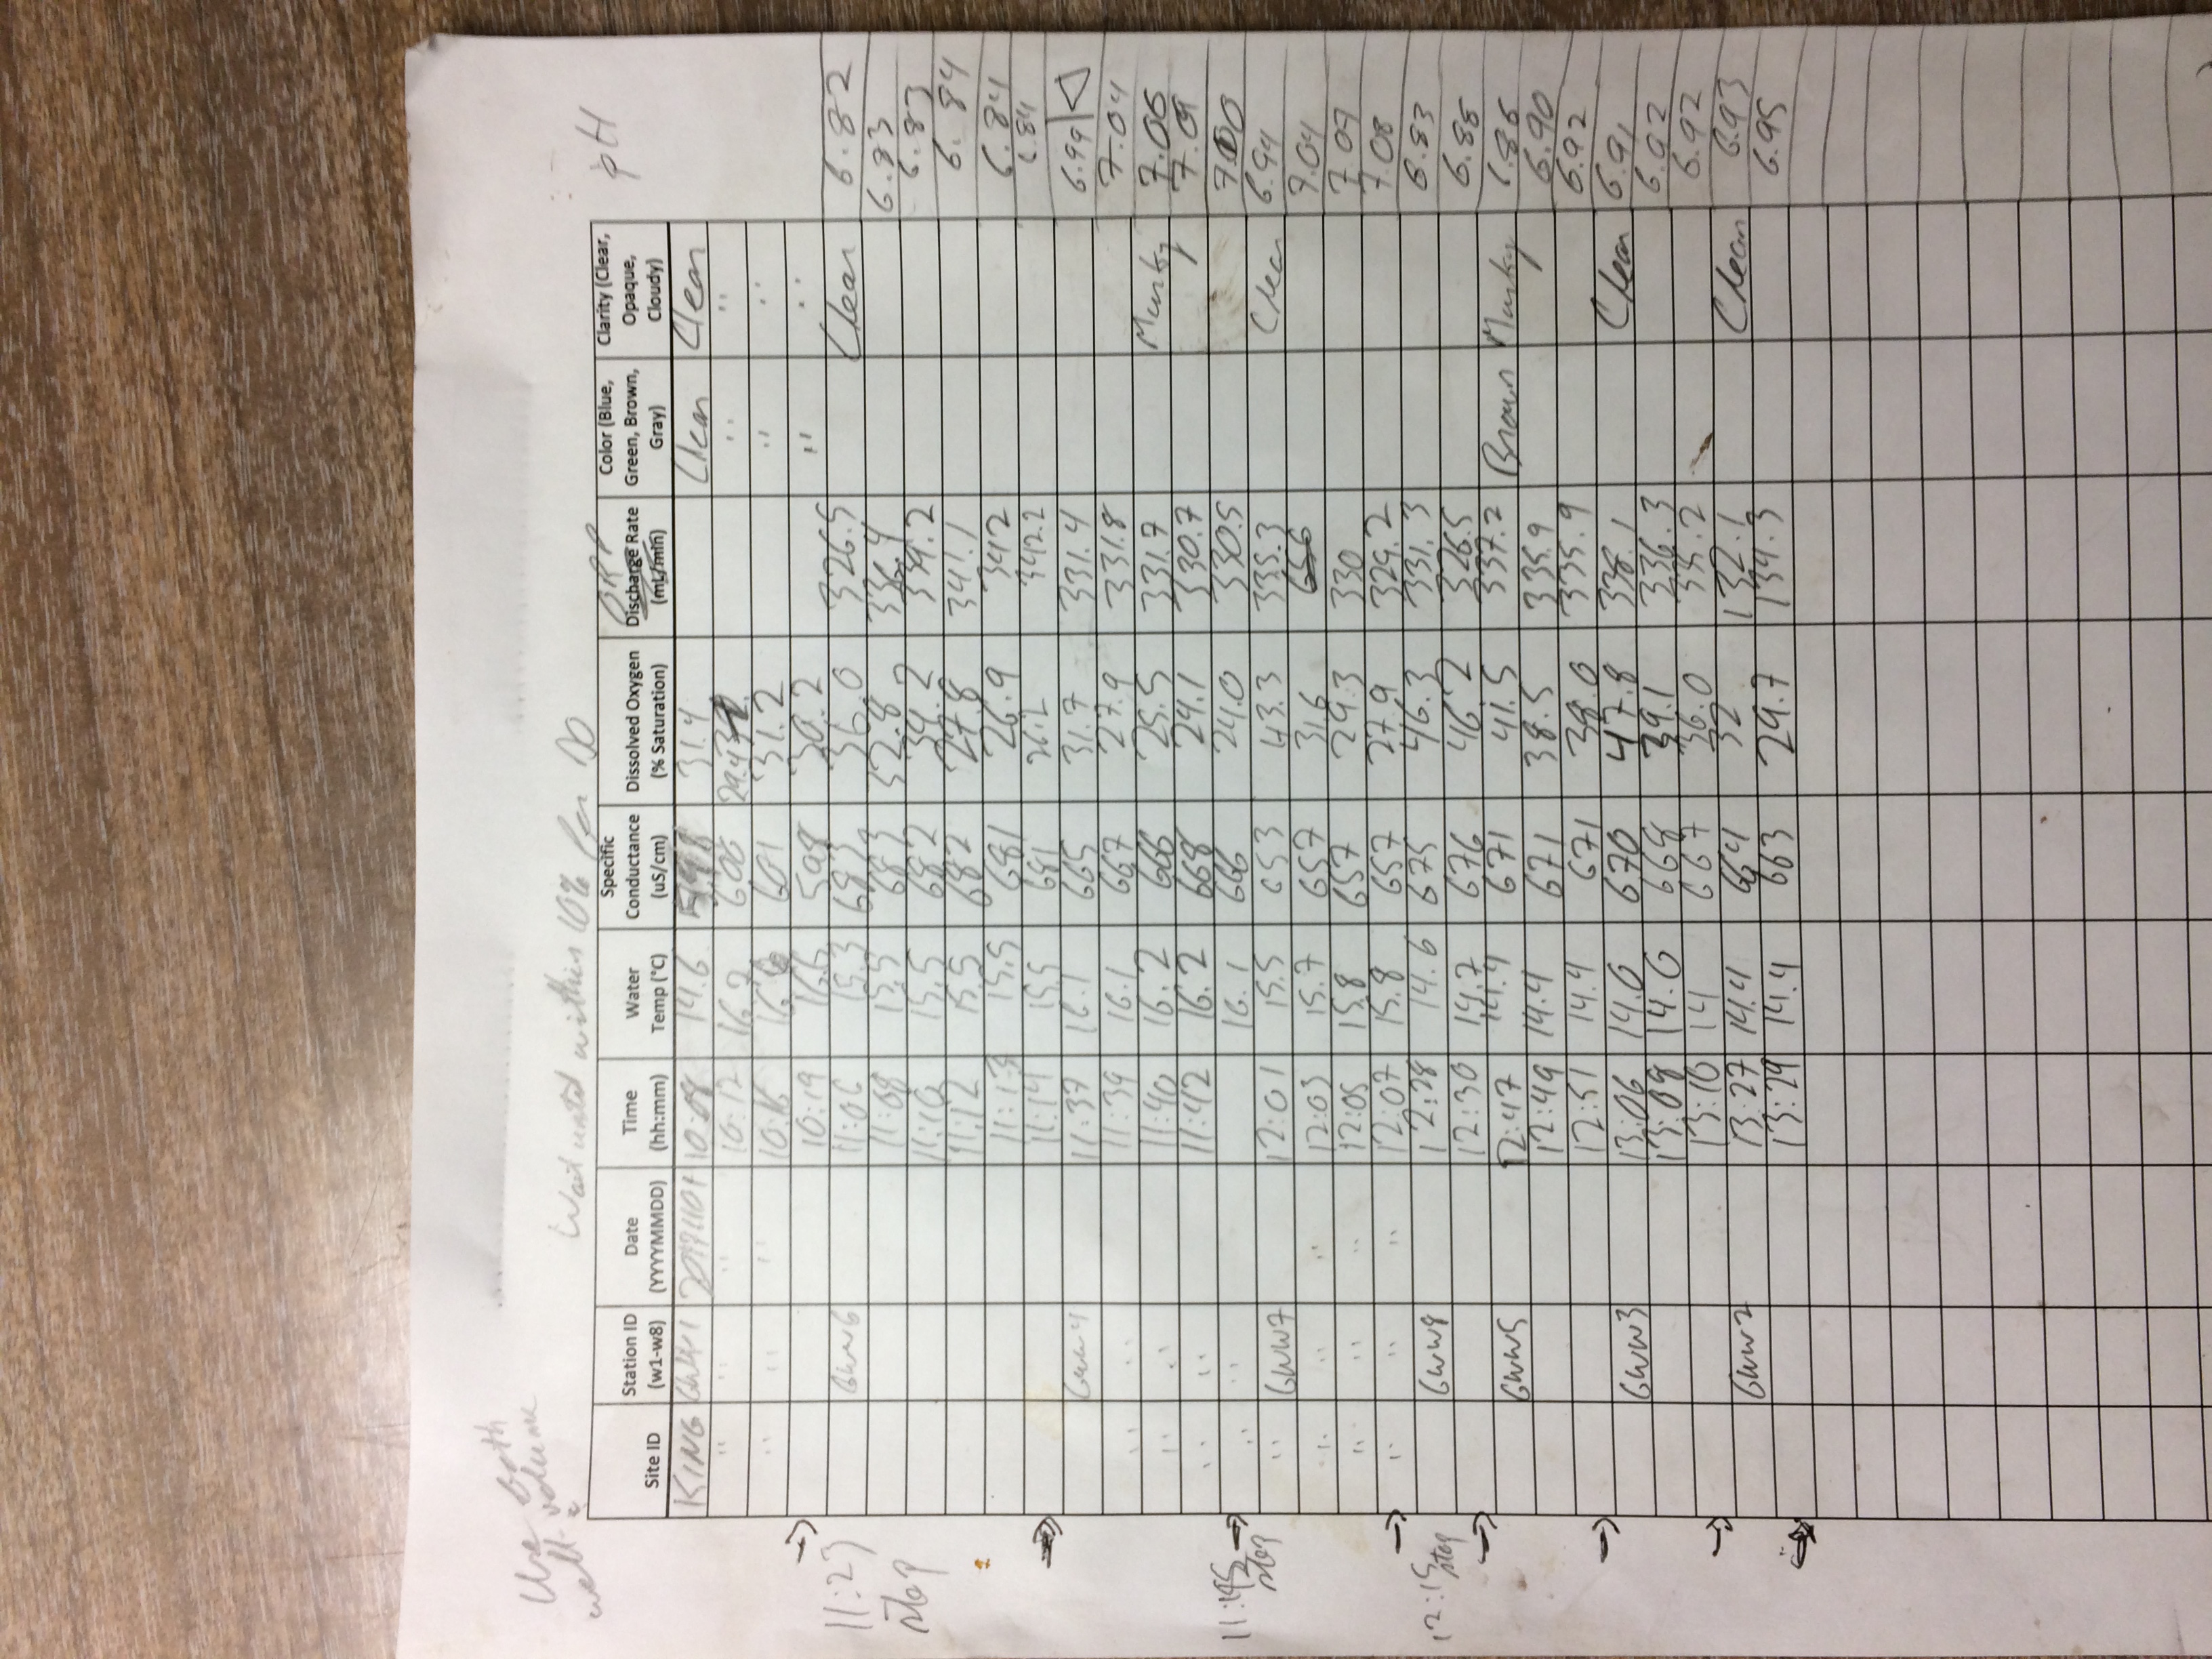 Use both
well volume
Wait until within 10% for DO
Site ID Station ID (w1-w8) Date (YYYYMMDD) Time (hh:mm) Water Temp (°C) Specific Conductance (uS/cm) Dissolved Oxygen (% Saturation) ORP Discharge Rate (mL/min) Color (Blue, Green, Brown, Gray) Clarity (Clear, Opaque, Cloudy) pH
KING GWW1 10:08 14.6 31.4 Clear Clear
" " " 10:12 16.7 600 29.4 " "
" " " 10:16 601 31.2 " "
10:19 16.6 598 30.2 " "
11:23 stop
GWW6 11:06 15.3 683 36.0 326.5 Clear 6.82
11:08 15.5 683 32.8 336.4 6.83
11:10 15.5 682 34.2 339.2 6.83
11:12 15.5 682 27.8 341.1 6.84
11:13 15.5 681 26.9 342 6.84
11:14 15.5 681 26.2 342.2 6.84
GWW4 11:37 16.1 665 31.7 331.4 6.99
" " 11:39 16.1 667 27.9 331.8 7.04
" " 11:40 16.2 666 25.5 331.7 Murky 7.06
" " 11:42 16.2 668 24.1 330.7
11:45 stop
" " 16.1 666 24.0 330.5 7.00
" GWW7 12:01 15.5 653 43.3 335.3 Clear 6.94
" " " 12:03 15.7 657 31.6 656 7.04
" " " 12:05 15.8 657 29.3 330 7.07
" " " 12:07 15.8 657 27.9 329.2 7.08
12:15 stop
GWW8 12:28 14.6 675 46.3 331.3 6.83
12:30 14.7 676 46.2 326.5 6.88
GWW5 12:47 14.4 671 41.5 337.2 Brown Murky 6.86
12:49 14.4 671 38.5 335.9 6.90
12:51 14.4 671 38.0 335.9 6.92
GWW3 13:06 14.0 670 47.8 338.1 Clear 6.91
13:08 14.0 668 39.1 336.3 6.92
13:10 14 667 36.0 335.2 6.92
GWW2 13:27 14.4 664 32 132.1 Clear 6.93
13:29 14.4 663 29.7 134.3 6.95